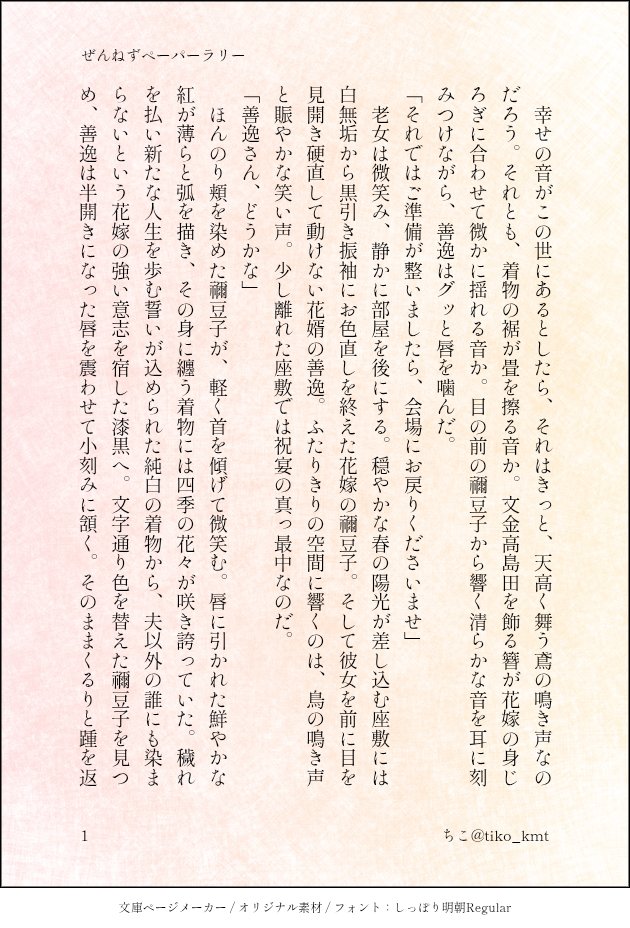 ぜんねずペーパーラリー
　幸せの音がこの世にあるとしたら、それはきっと、天高く舞う鳶の鳴き声なの
だろう。それとも、着物の裾が畳を擦る音か。文金高島田を飾る簪が花嫁の身じ
ろぎに合わせて微かに揺れる音か。目の前の禰豆子から響く清らかな音を耳に刻
みつけながら、善逸はグッと唇を噛んだ。
「それではご準備が整いましたら、会場にお戻りくださいませ」
　老女は微笑み、静かに部屋を後にする。穏やかな春の陽光が差し込む座敷には
白無垢から黒引き振袖にお色直しを終えた花嫁の禰豆子。そして彼女を前に目を
見開き硬直して動けない花婿の善逸。ふたりきりの空間に響くのは、鳥の鳴き声
と賑やかな笑い声。少し離れた座敷では祝宴の真っ最中なのだ。
「善逸さん、どうかな」
　ほんのり頬を染めた禰豆子が、軽く首を傾げて微笑む。唇に引かれた鮮やかな
紅が薄らと弧を描き、その身に纏う着物には四季の花々が咲き誇っていた。穢れ
を払い新たな人生を歩む誓いが込められた純白の着物から、夫以外の誰にも染ま
らないという花嫁の強い意志を宿した漆黒へ。文字通り色を替えた禰豆子を見つ
め、善逸は半開きになった唇を震わせて小刻みに頷く。そのままくるりと踵を返
1
ちこ@tiko_kmt
文庫ページメーカー / オリジナル素材 / フォント：しっぽり明朝Regular